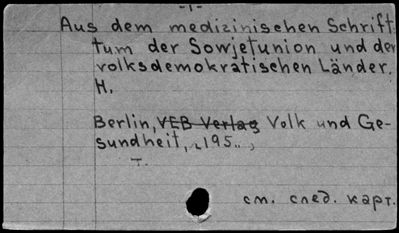 -1-
Aus dem medizinischen Schrift-
tum der Sowjetunion und der
volksdemokratischen Länder.
H.
Berlin, VEB Verlag Volk und Ge-
sundheit, 195..,
T.
см. след. карт.